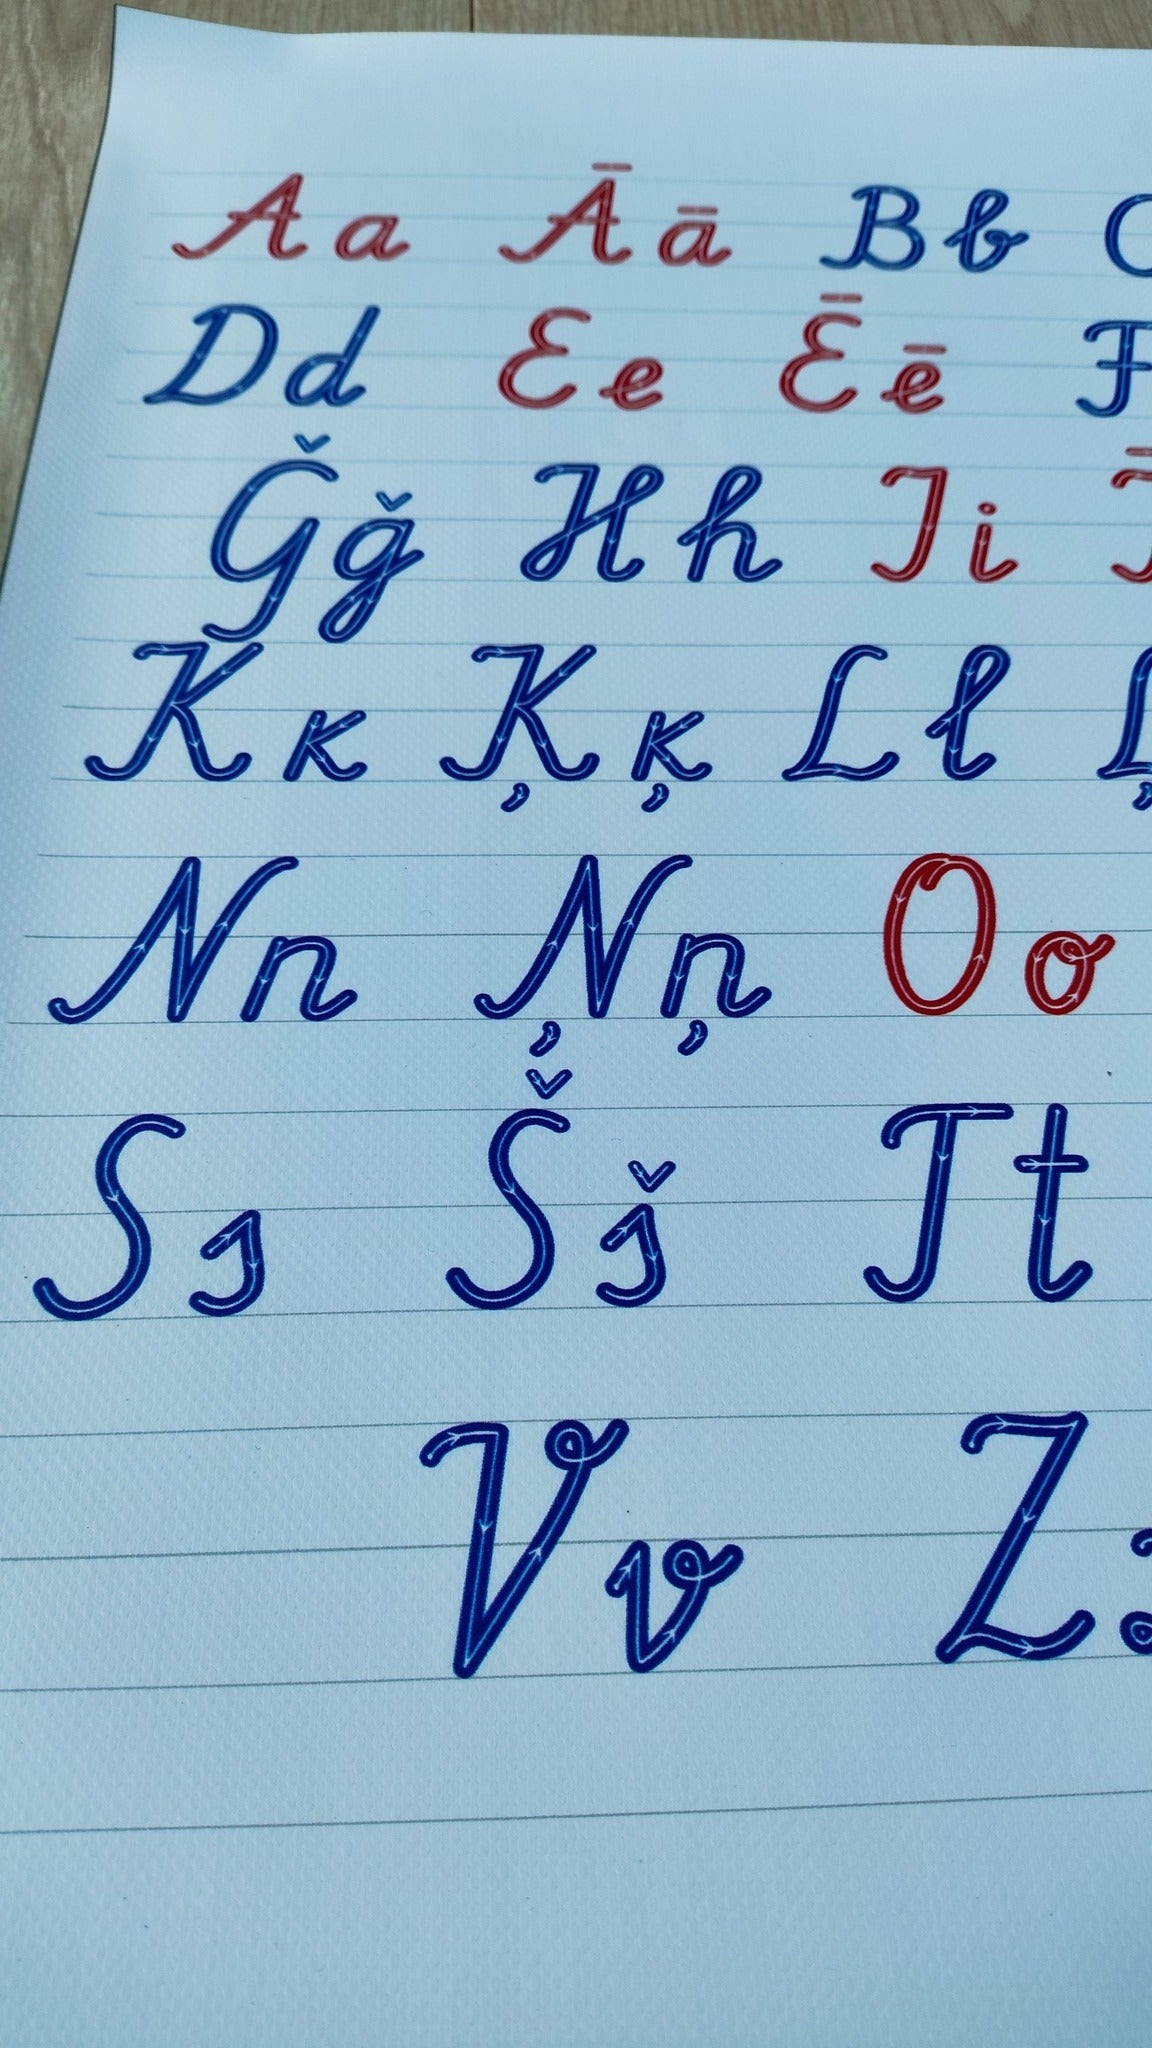 Aa Āā Bb
Dd Ee Ēē F
Ǧǧ Hh Ii
Kk Ķķ Ll Ļ
Nn Ņņ Oo
Ss Šš Tt
Vv Z